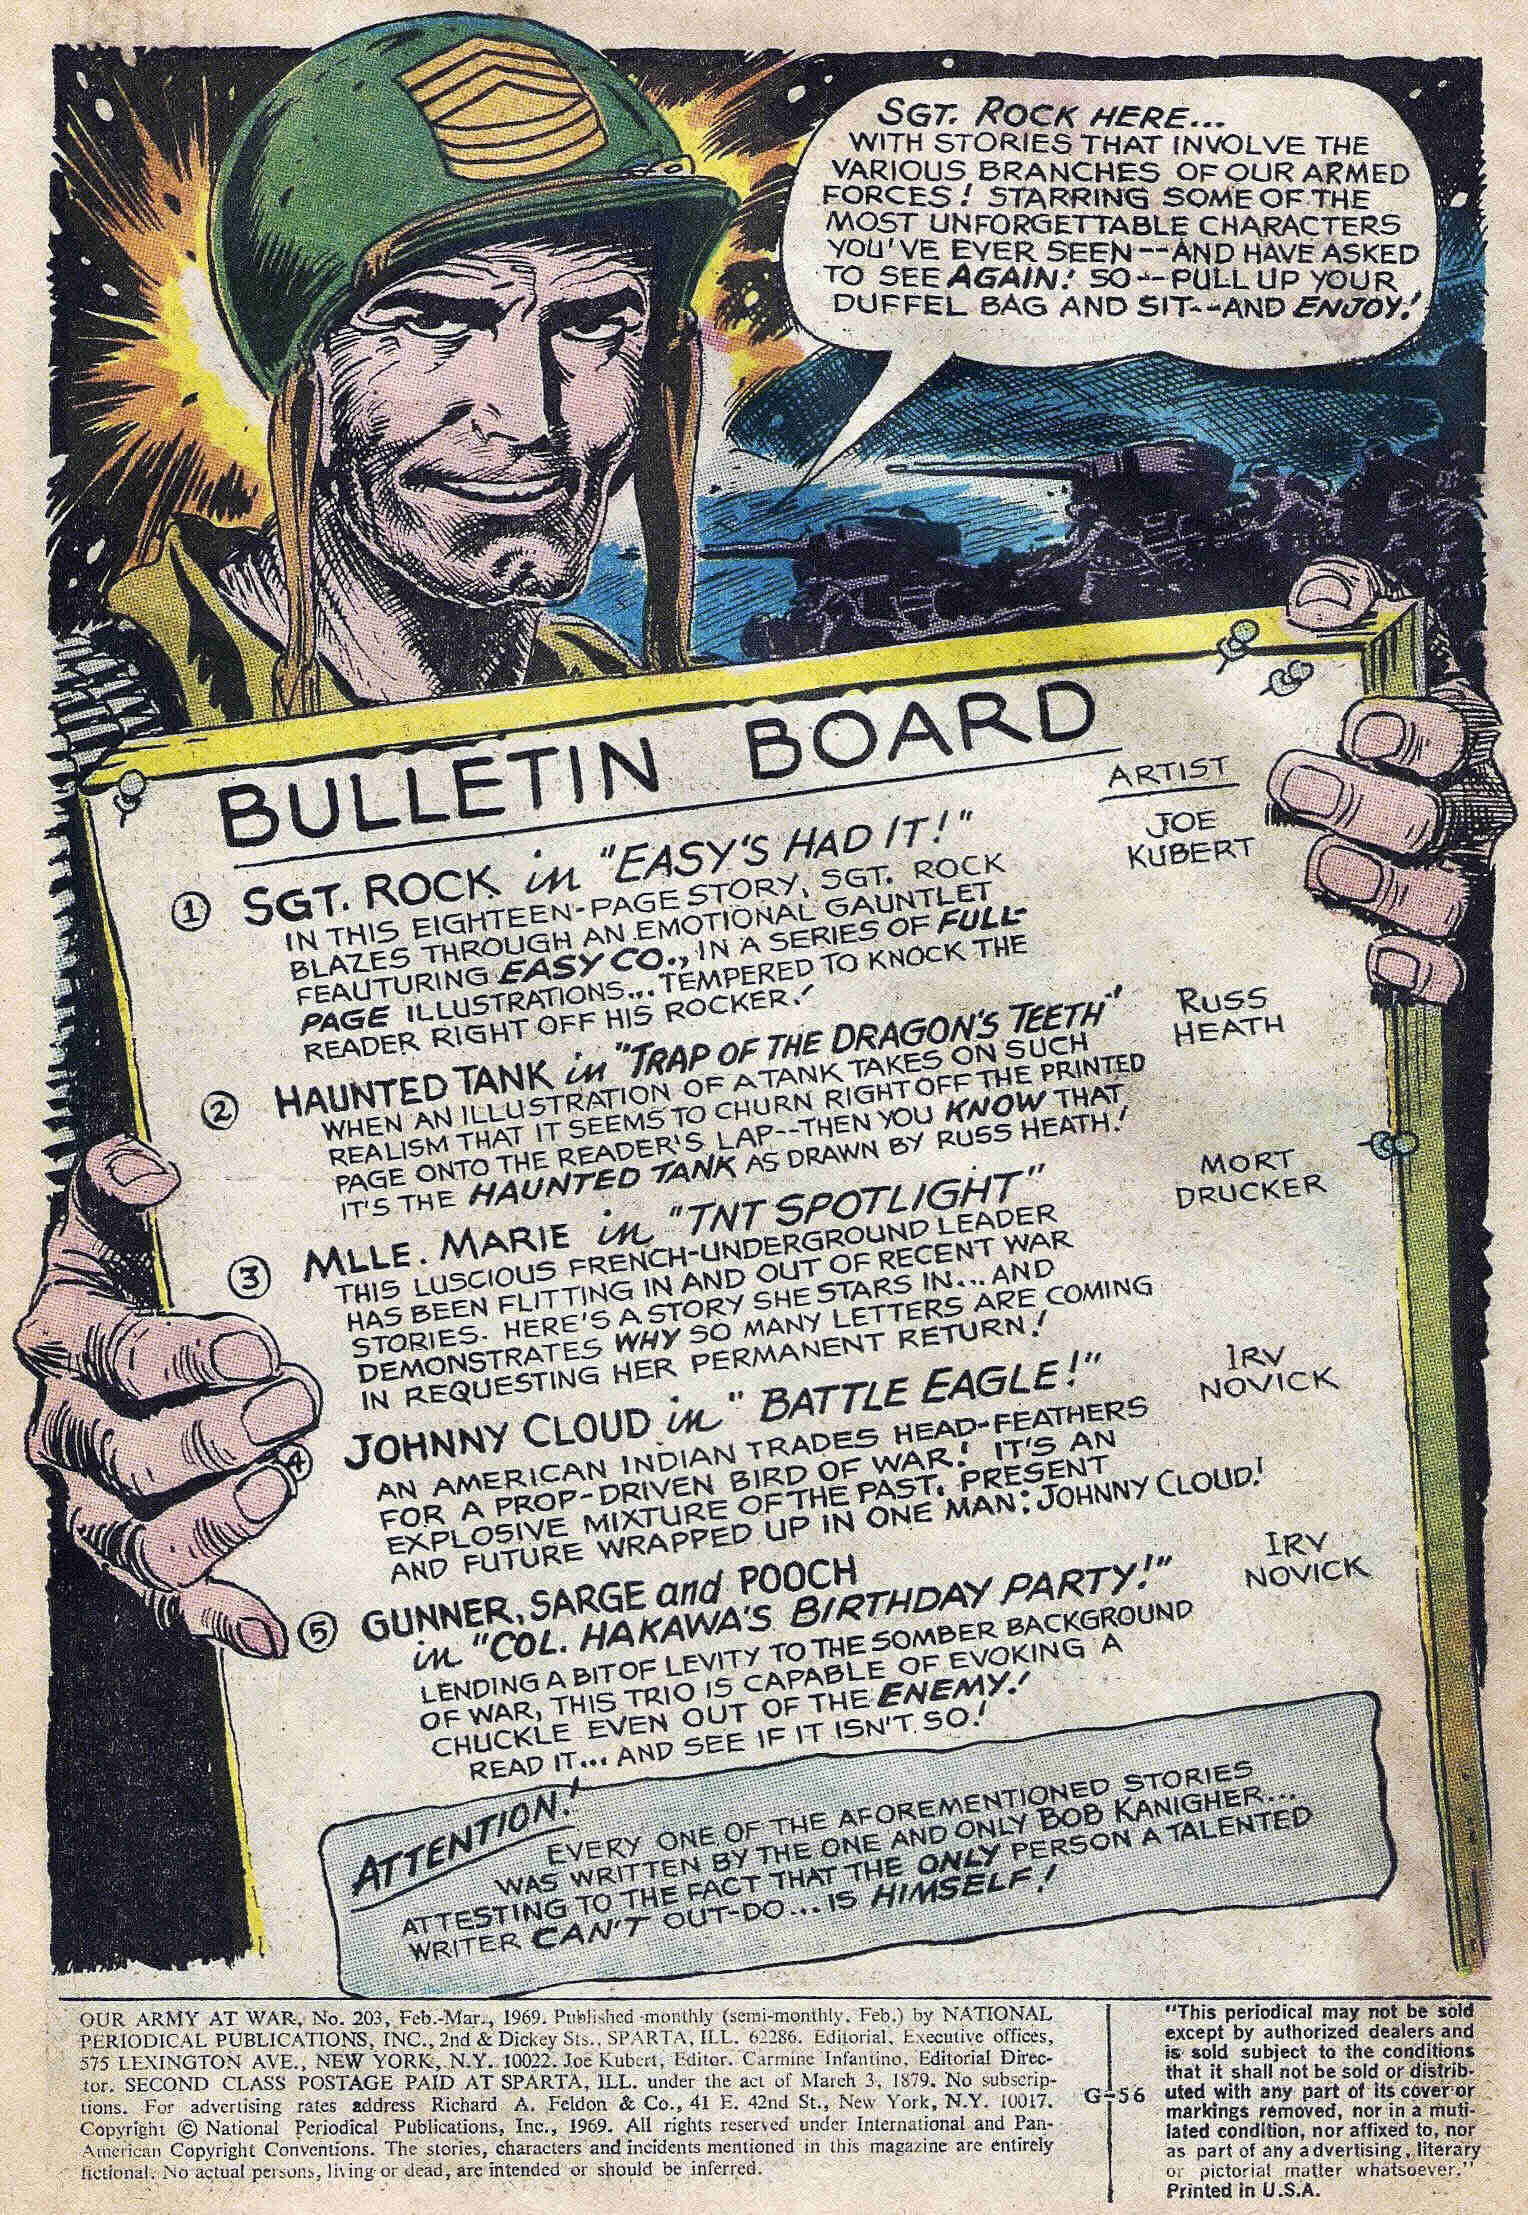 SGT. ROCK HERE...
WITH STORIES THAT INVOLVE THE
VARIOUS BRANCHES OF OUR ARMED
FORCES! STARRING SOME OF THE
MOST UNFORGETTABLE CHARACTERS
YOU'VE EVER SEEN--AND HAVE ASKED
TO SEE AGAIN! SO--PULL UP YOUR
DUFFEL BAG AND SIT--AND ENJOY!
BULLETIN BOARD
ARTIST
① SGT. ROCK in "EASY'S HAD IT!"
JOE
KUBERT
IN THIS EIGHTEEN-PAGE STORY, SGT. ROCK
BLAZES THROUGH AN EMOTIONAL GAUNTLET
FEAUTURING EASY CO., IN A SERIES OF FULL-
PAGE ILLUSTRATIONS... TEMPERED TO KNOCK THE
READER RIGHT OFF HIS ROCKER!
② HAUNTED TANK in "TRAP OF THE DRAGON'S TEETH"
RUSS
HEATH
WHEN AN ILLUSTRATION OF A TANK TAKES ON SUCH
REALISM THAT IT SEEMS TO CHURN RIGHT OFF THE PRINTED
PAGE ONTO THE READER'S LAP--THEN YOU KNOW THAT
IT'S THE HAUNTED TANK AS DRAWN BY RUSS HEATH!
③ MLLE. MARIE in "TNT SPOTLIGHT"
MORT
DRUCKER
THIS LUSCIOUS FRENCH-UNDERGROUND LEADER
HAS BEEN FLITTING IN AND OUT OF RECENT WAR
STORIES. HERE'S A STORY SHE STARS IN... AND
DEMONSTRATES WHY SO MANY LETTERS ARE COMING
IN REQUESTING HER PERMANENT RETURN!
④ JOHNNY CLOUD in "BATTLE EAGLE!"
IRV
NOVICK
AN AMERICAN INDIAN TRADES HEAD-FEATHERS
FOR A PROP-DRIVEN BIRD OF WAR! IT'S AN
EXPLOSIVE MIXTURE OF THE PAST, PRESENT
AND FUTURE WRAPPED UP IN ONE MAN: JOHNNY CLOUD!
⑤ GUNNER, SARGE and POOCH
in "COL. HAKAWA'S BIRTHDAY PARTY!"
IRV
NOVICK
LENDING A BIT OF LEVITY TO THE SOMBER BACKGROUND
OF WAR, THIS TRIO IS CAPABLE OF EVOKING A
CHUCKLE EVEN OUT OF THE ENEMY!
READ IT... AND SEE IF IT ISN'T SO!
ATTENTION!
EVERY ONE OF THE AFOREMENTIONED STORIES
WAS WRITTEN BY THE ONE AND ONLY BOB KANIGHER...
ATTESTING TO THE FACT THAT THE ONLY PERSON A TALENTED
WRITER CAN'T OUT-DO... IS HIMSELF!
OUR ARMY AT WAR, No. 203, Feb.-Mar., 1969. Published monthly (semi-monthly, Feb.) by NATIONAL
PERIODICAL PUBLICATIONS, INC., 2nd & Dickey Sts., SPARTA, ILL. 62286. Editorial, Executive offices,
575 LEXINGTON AVE., NEW YORK, N.Y. 10022. Joe Kubert, Editor. Carmine Infantino, Editorial Direc-
tor. SECOND CLASS POSTAGE PAID AT SPARTA, ILL. under the act of March 3, 1879. No subscrip-
tions. For advertising rates address Richard A. Feldon & Co., 41 E. 42nd St., New York, N.Y. 10017.
Copyright © National Periodical Publications, Inc., 1969. All rights reserved under International and Pan-
American Copyright Conventions. The stories, characters and incidents mentioned in this magazine are entirely
fictional. No actual persons, living or dead, are intended or should be inferred.
G-56
"This periodical may not be sold
except by authorized dealers and
is sold subject to the conditions
that it shall not be sold or distrib-
uted with any part of its cover or
markings removed, nor in a muti-
lated condition, nor affixed to, nor
as part of any advertising, literary
or pictorial matter whatsoever."
Printed in U.S.A.